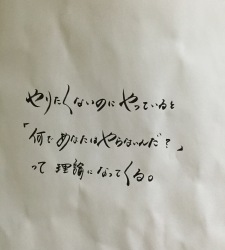 やりたくないのにやっていると
「何であなたはやらないんだ？」
って理論になってくる。